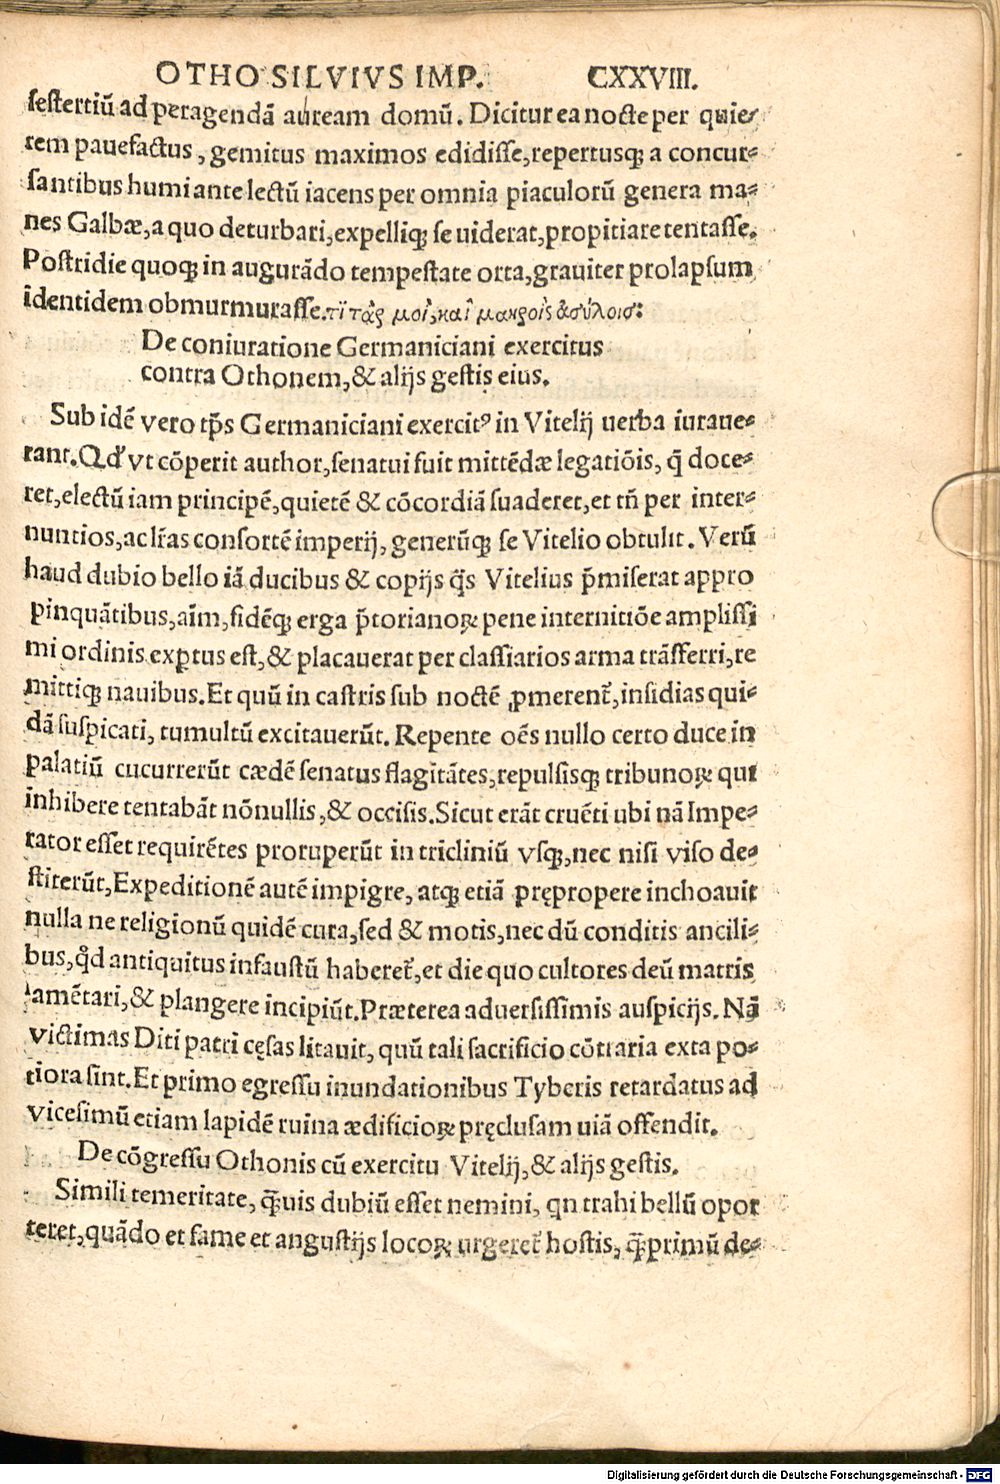 OTHO SILVIVS IMP. CXXVIII.
sestertiũ ad peragendã auream domũ. Dicitur ea nocte per quie⸗
tem pauefactus, gemitus maximos edidisse, repertusq̃ a concur⸗
santibus humi ante lectũ iacens per omnia piaculorũ genera ma⸗
nes Galbæ, a quo deturbari, expelliq̃ se uiderat, propitiare tentasse.
Postridie quoq̃ in augurãdo tempestate orta, grauiter prolapsum
identidem obmurmurasse. τί τὰρ μοὶ, καὶ μακροῖς ἀσύλοισ:
De coniuratione Germaniciani exercitus
contra Othonem, & alijs gestis eius.
Sub idẽ vero tp̃s Germaniciani exercitꝰ in Vitelij uerba iuraue⸗
rant. Qđ vt cõperit author, senatui fuit mittẽdæ legatiõis, q̃ doce⸗
ret, electũ iam principẽ, quietẽ & cõcordiã suaderet, et tñ per inter⸗
nuntios, ac lr̃as consortẽ imperij, generũq̃ se Vitelio obtulit. Verũ
haud dubio bello iã ducibus & copijs q̃s Vitelius p̃miserat appro
pinquãtibus, aĩm, fidẽq̃ erga p̃torianoꝝ pene internitiõe amplissi
mi ordinis exꝑtus est, & placauerat per classiarios arma trãsferri, re
mittiq̃ nauibus. Et quũ in castris sub noctẽ ꝓmerent̃, insidias qui⸗
dã suspicati, tumultũ excitauerũt. Repente oẽs nullo certo duce in
palatiũ cucurrerũt cædẽ senatus flagitãtes, repulsisq̃ tribunoꝝ qui
inhibere tentabãt nõnullis, & occisis. Sicut erãt cruẽti ubi nã Impe⸗
rator esset requirẽtes proruperũt in tricliniũ vsq̃, nec nisi viso de⸗
stiterũt, Expeditionẽ autẽ impigre, atq̃ etiã prępropere inchoauit
nulla ne religionũ quidẽ cura, sed & motis, nec dũ conditis ancili⸗
bus, qđ antiquitus infaustũ haberet̃, et die quo cultores deũ matris
lamẽtari, & plangere incipiũt. Præterea aduersissimis auspicijs. Nã
victimas Diti patri cęsas litauit, quũ tali sacrificio cõtraria exta po⸗
tiora sint. Et primo egressu inundationibus Tyberis retardatus ad
vicesimũ etiam lapidẽ ruina ædificioꝝ pręclusam uiã offendit.
De cõgressu Othonis cũ exercitu Vitelij, & alijs gestis.
Simili temeritate, q̃uis dubiũ esset nemini, qn trahi bellũ opor
teret, quãdo et fame et angustijs locoꝝ urgeret̃ hostis, q̃primũ de⸗
Digitalisierung gefördert durch die Deutsche Forschungsgemeinschaft - DFG